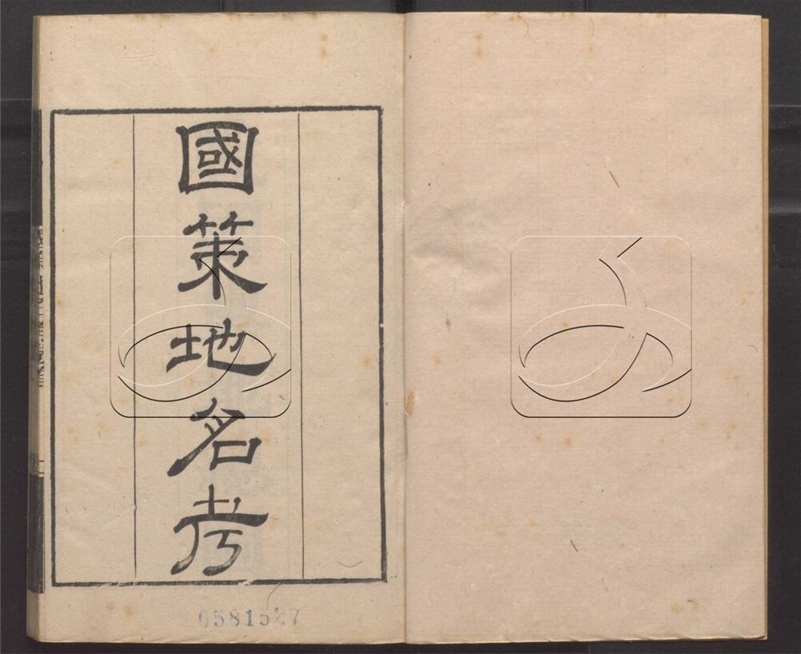 國策地名考
0581527